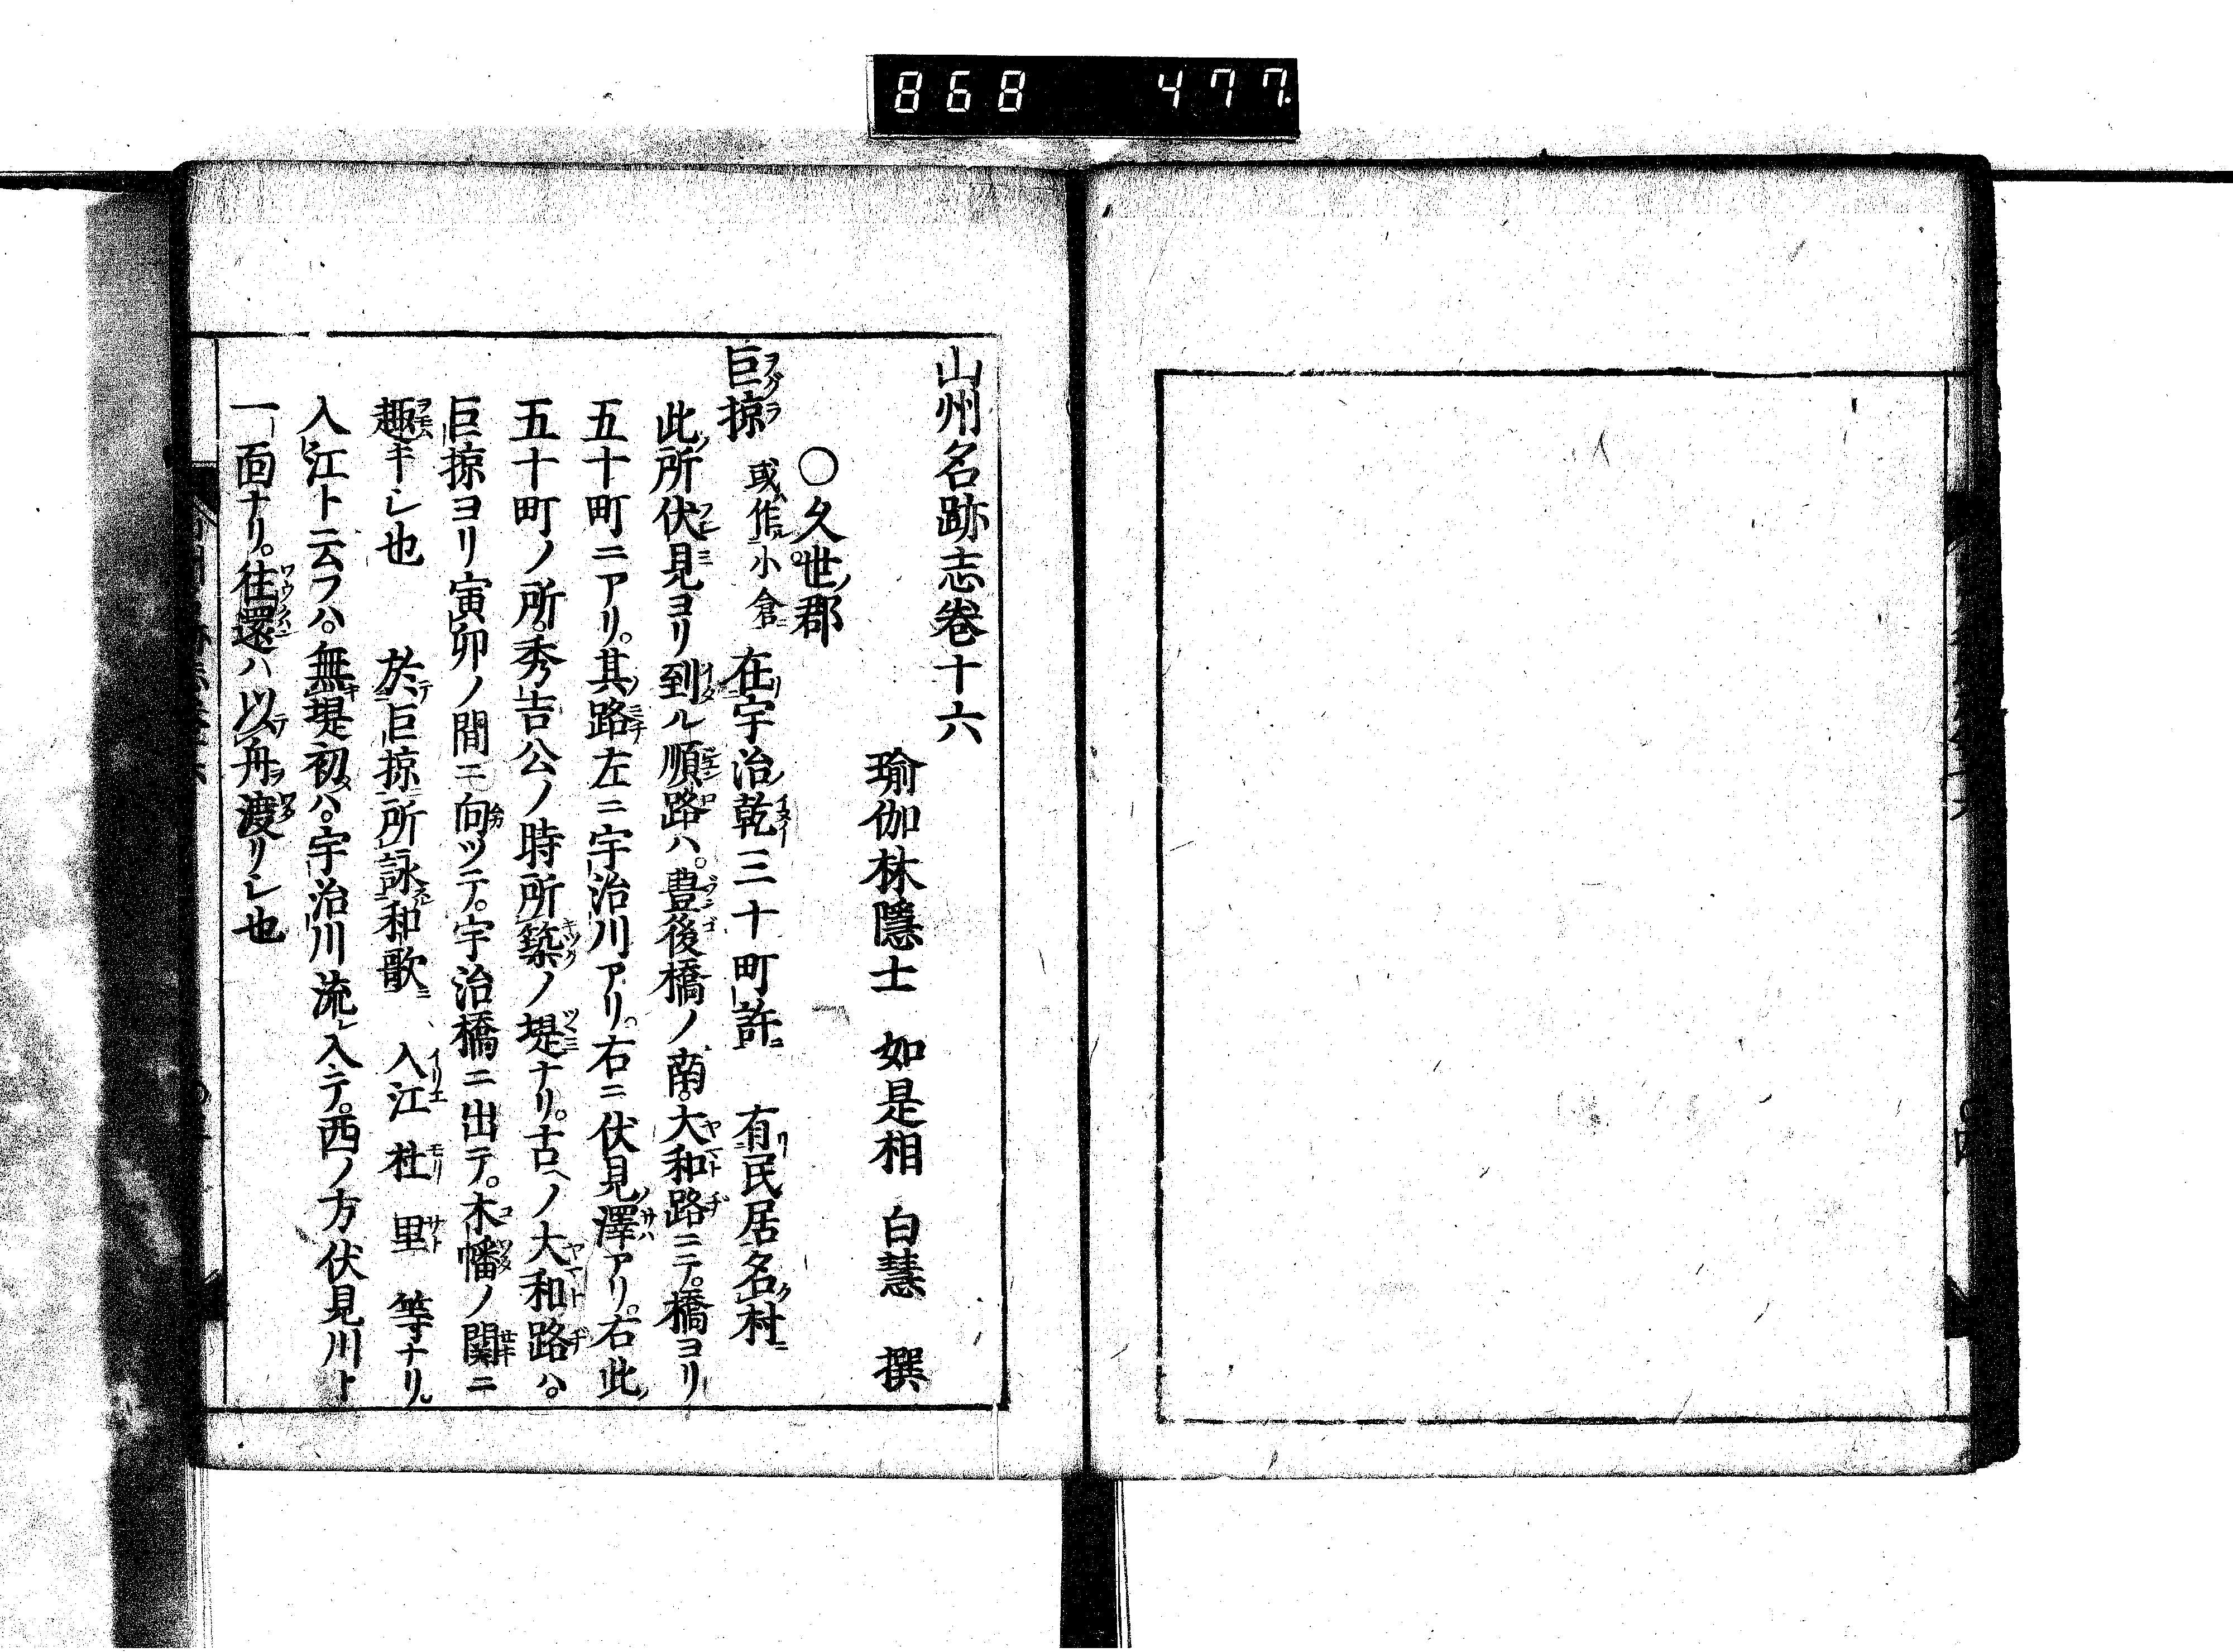 868 477
山州名跡志卷十六
瑜伽林隱士 如是相 白慧 撰
○久世ノ郡
巨掠 或作小倉 在宇治ノ乾三十町許ニ 有民居名村ニ
此ノ所伏見ヨリ到ル順路ハ。豊後橋ノ南。大和路ニテ。橋ヨリ
五十町ニアリ。其路左ニ宇治川アリ。右ニ伏見ノ澤アリ。右此ノ
五十町ノ所。秀吉公ノ時所築ノ堤ナリ。古ヘノ大和路ハ。
巨掠ヨリ寅卯ノ間ニ向ツテ。宇治橋ニ出テ。木幡ノ関ニ
趣キシ也 於巨掠所詠和歌ニ 入江 杜 里 等ナリ
入江ト云フハ。無堤初ハ。宇治川流レ入テ。西ノ方伏見川ト
一面ナリ。往還ハ以舟渡リシ也